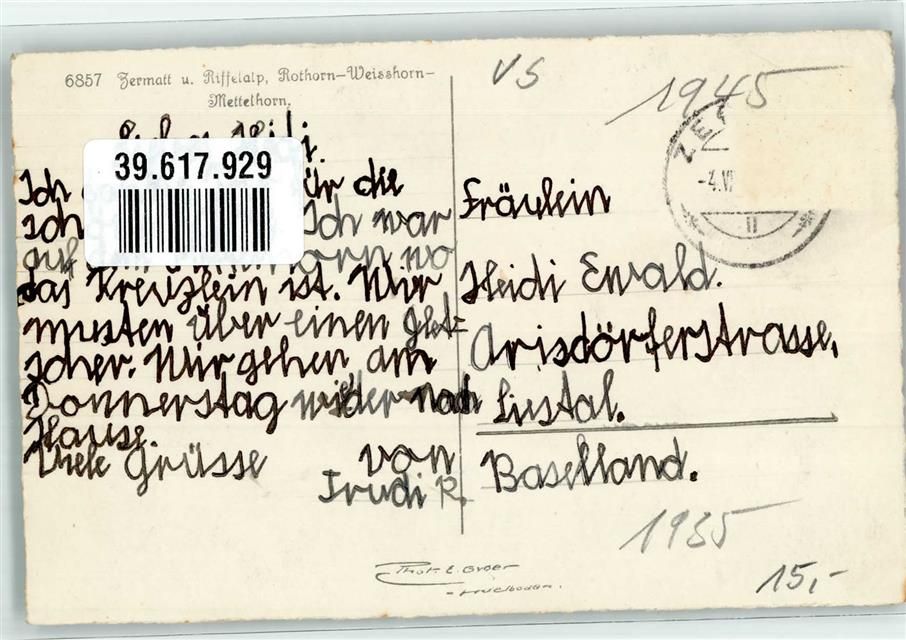 6857 Zermatt u. Riffelalp, Rothorn-Weisshorn-
Mettelhorn.
39.617.929
Ich für die
Ich war
wo
das Kreuzlein ist. Mir
musten über einen Glet=
scher. Mir gehen am
Donnerstag wider nach
Hause.
Viele Grüsse von
Trudi R.
VS
1945
ZE
-4.VI
Fräulein
Heidi Ewald.
Arisdörferstrasse,
Liestal.
Baselland.
1935
15,-
Phot. E. Gyger